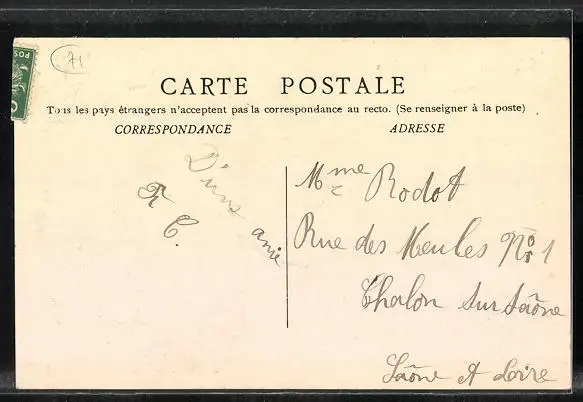 71
CARTE POSTALE
Tous les pays étrangers n'acceptent pas la correspondance au recto. (Se renseigner à la poste)
CORRESPONDANCE
ADRESSE
D'une amie
R C.
Mme Rodot
Rue des Meules No 1
Chalon sur Saône
Saône et Loire